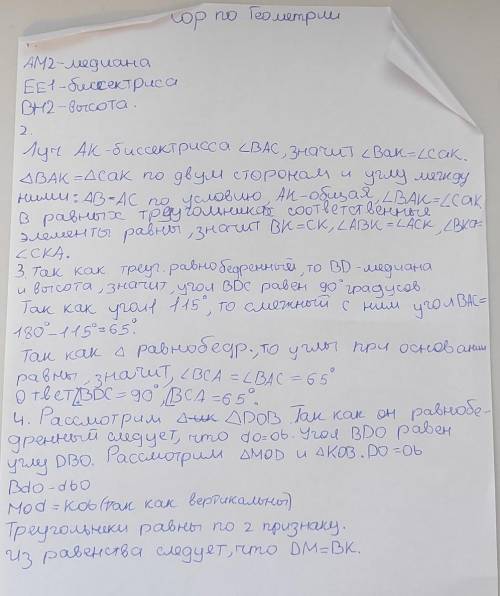 сор по Геометрии
АМ2-медиана
ЕЕ1-биссектриса
ВН2-высота.
2.
Луч АК-биссектрисса ∠ВАС, значит ∠Вак=∠сак.
△ВАК=△САК по двум сторонам и углу между
ними: АВ=АС по условию, АК-общая, ∠ВАК=∠САК
В равных треугольниках соответственные
элементы равны, значит ВК=СК, ∠АВК=∠АСК, ∠ВКА=
∠СКА.
3. Так как треуг. равнобедренный, то BD-медиана
и высота, значит, угол BDC равен 90° градусов
Так как угол1 115°, то смежный с ним угол ВАС=
180°-115°=65°.
Так как △ равнобедр., то углы при основании
равны, значит, ∠ВСА=∠ВАС=65°
Ответ: ∠BDC=90°, ∠ВСА=65°.
4. Рассмотрим △DOB. Так как он равнобе-
дренный следует, что do=ob. Угол BDO равен
углу DBO. Рассмотрим △MOD и △KOB. DO=OB
Bdo-dbo
Mod=Kob (так как вертикальны)
Треугольники равны по 2 признаку.
Из равенства следует, что DM=BK.